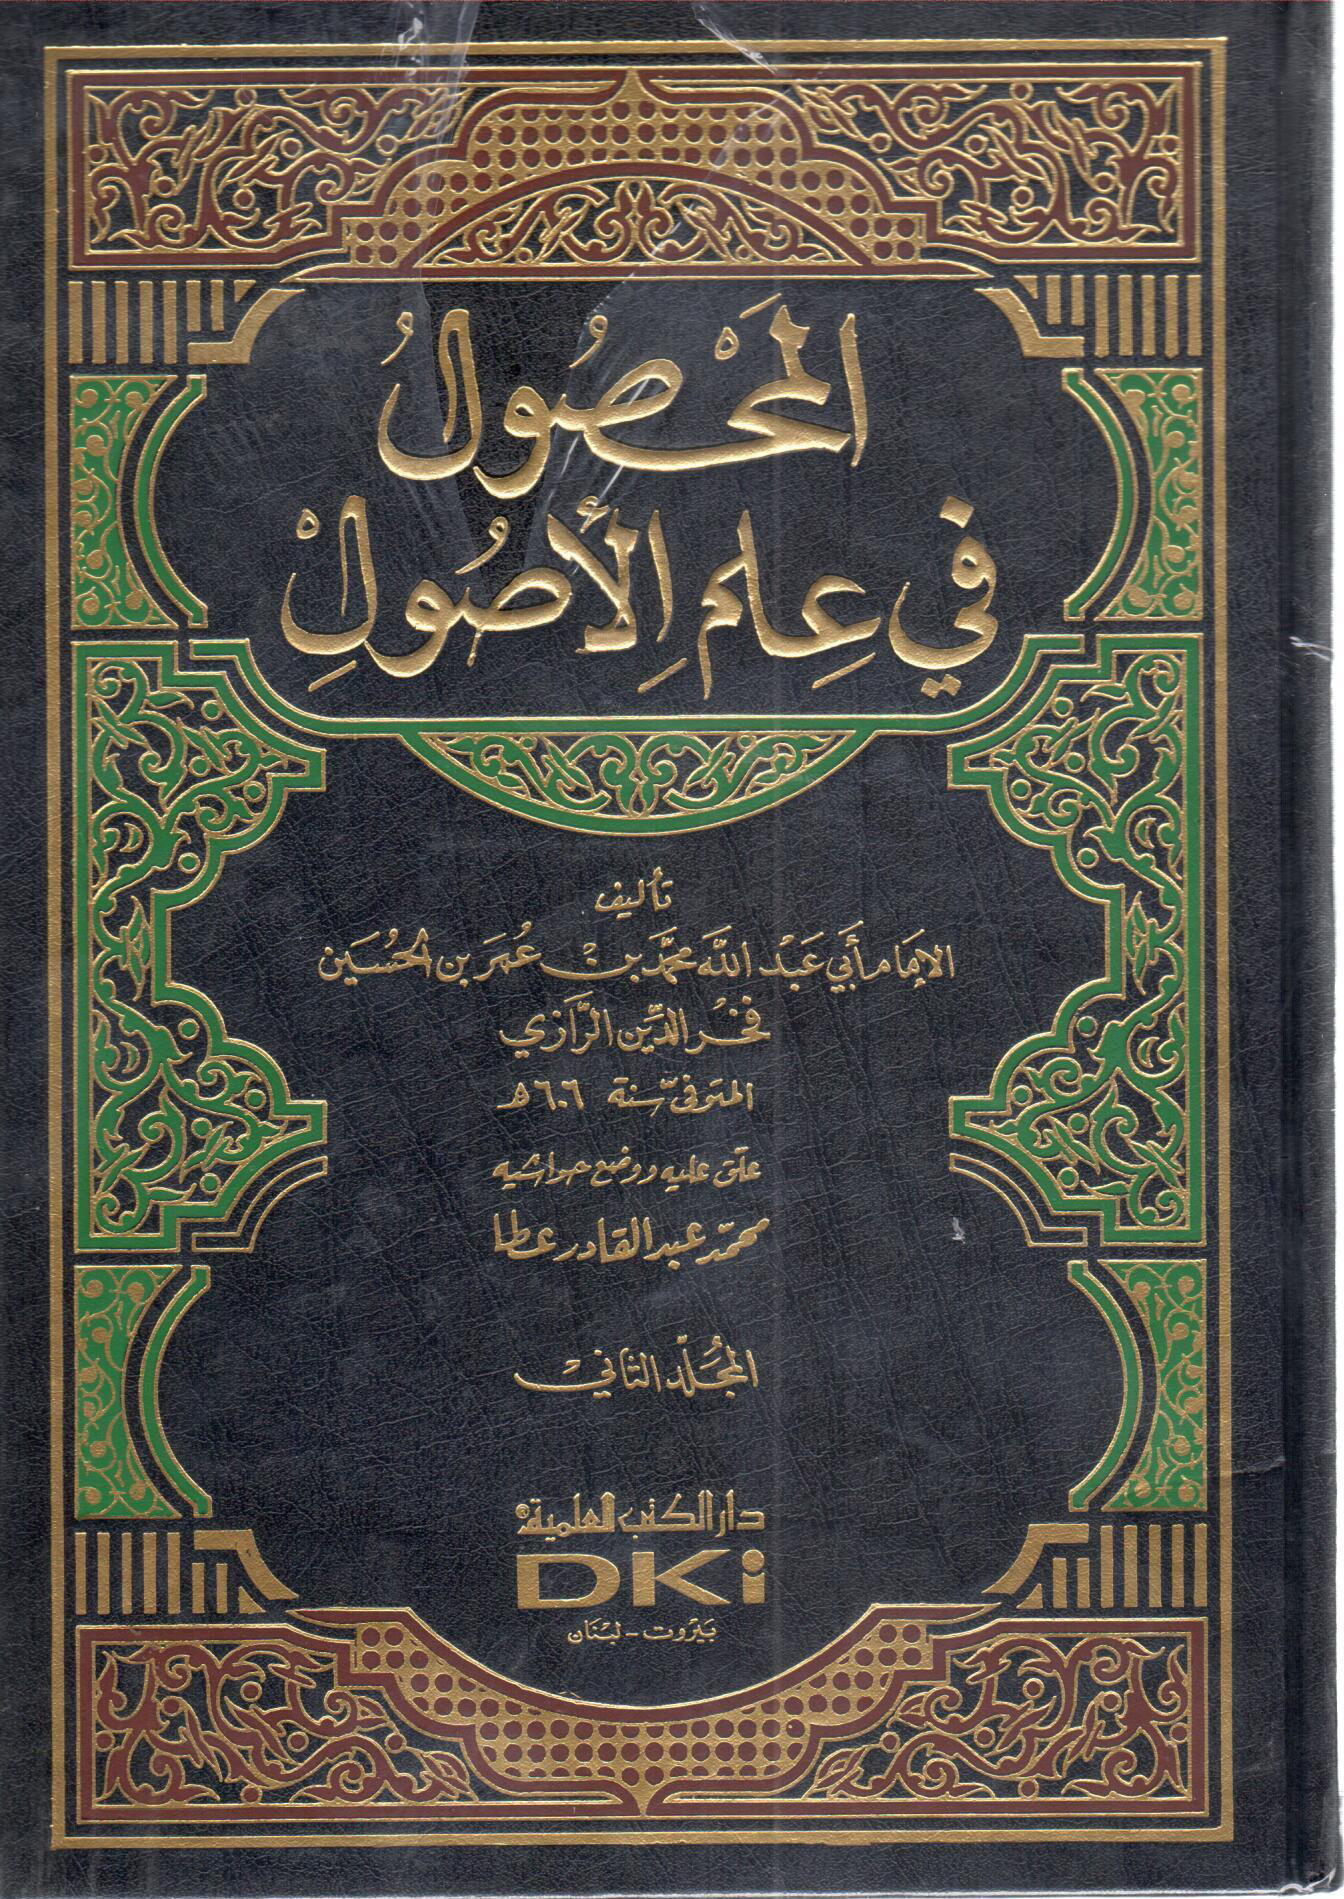 المَحْصُولُ
فِي عِلمِ الأُصُولِ
تأليف
الإمَام أبي عَبْد الله محمَّد بنْ عُمَر بن الحُسَين
فخر الدِّين الرَّازي
المتوفىّ سنة ٦٠٦هـ
علق عليه ووضع حواشيه
محمّد عبد القادر عطا
المُجلّد الثاني
دار الكتب العلمية®
DKi
بَيْرُوت - لبْنَان